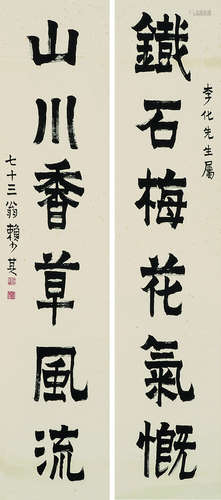 李化先生屬
鐵石梅花氣慨
山川香草風流
七十三翁賴少其